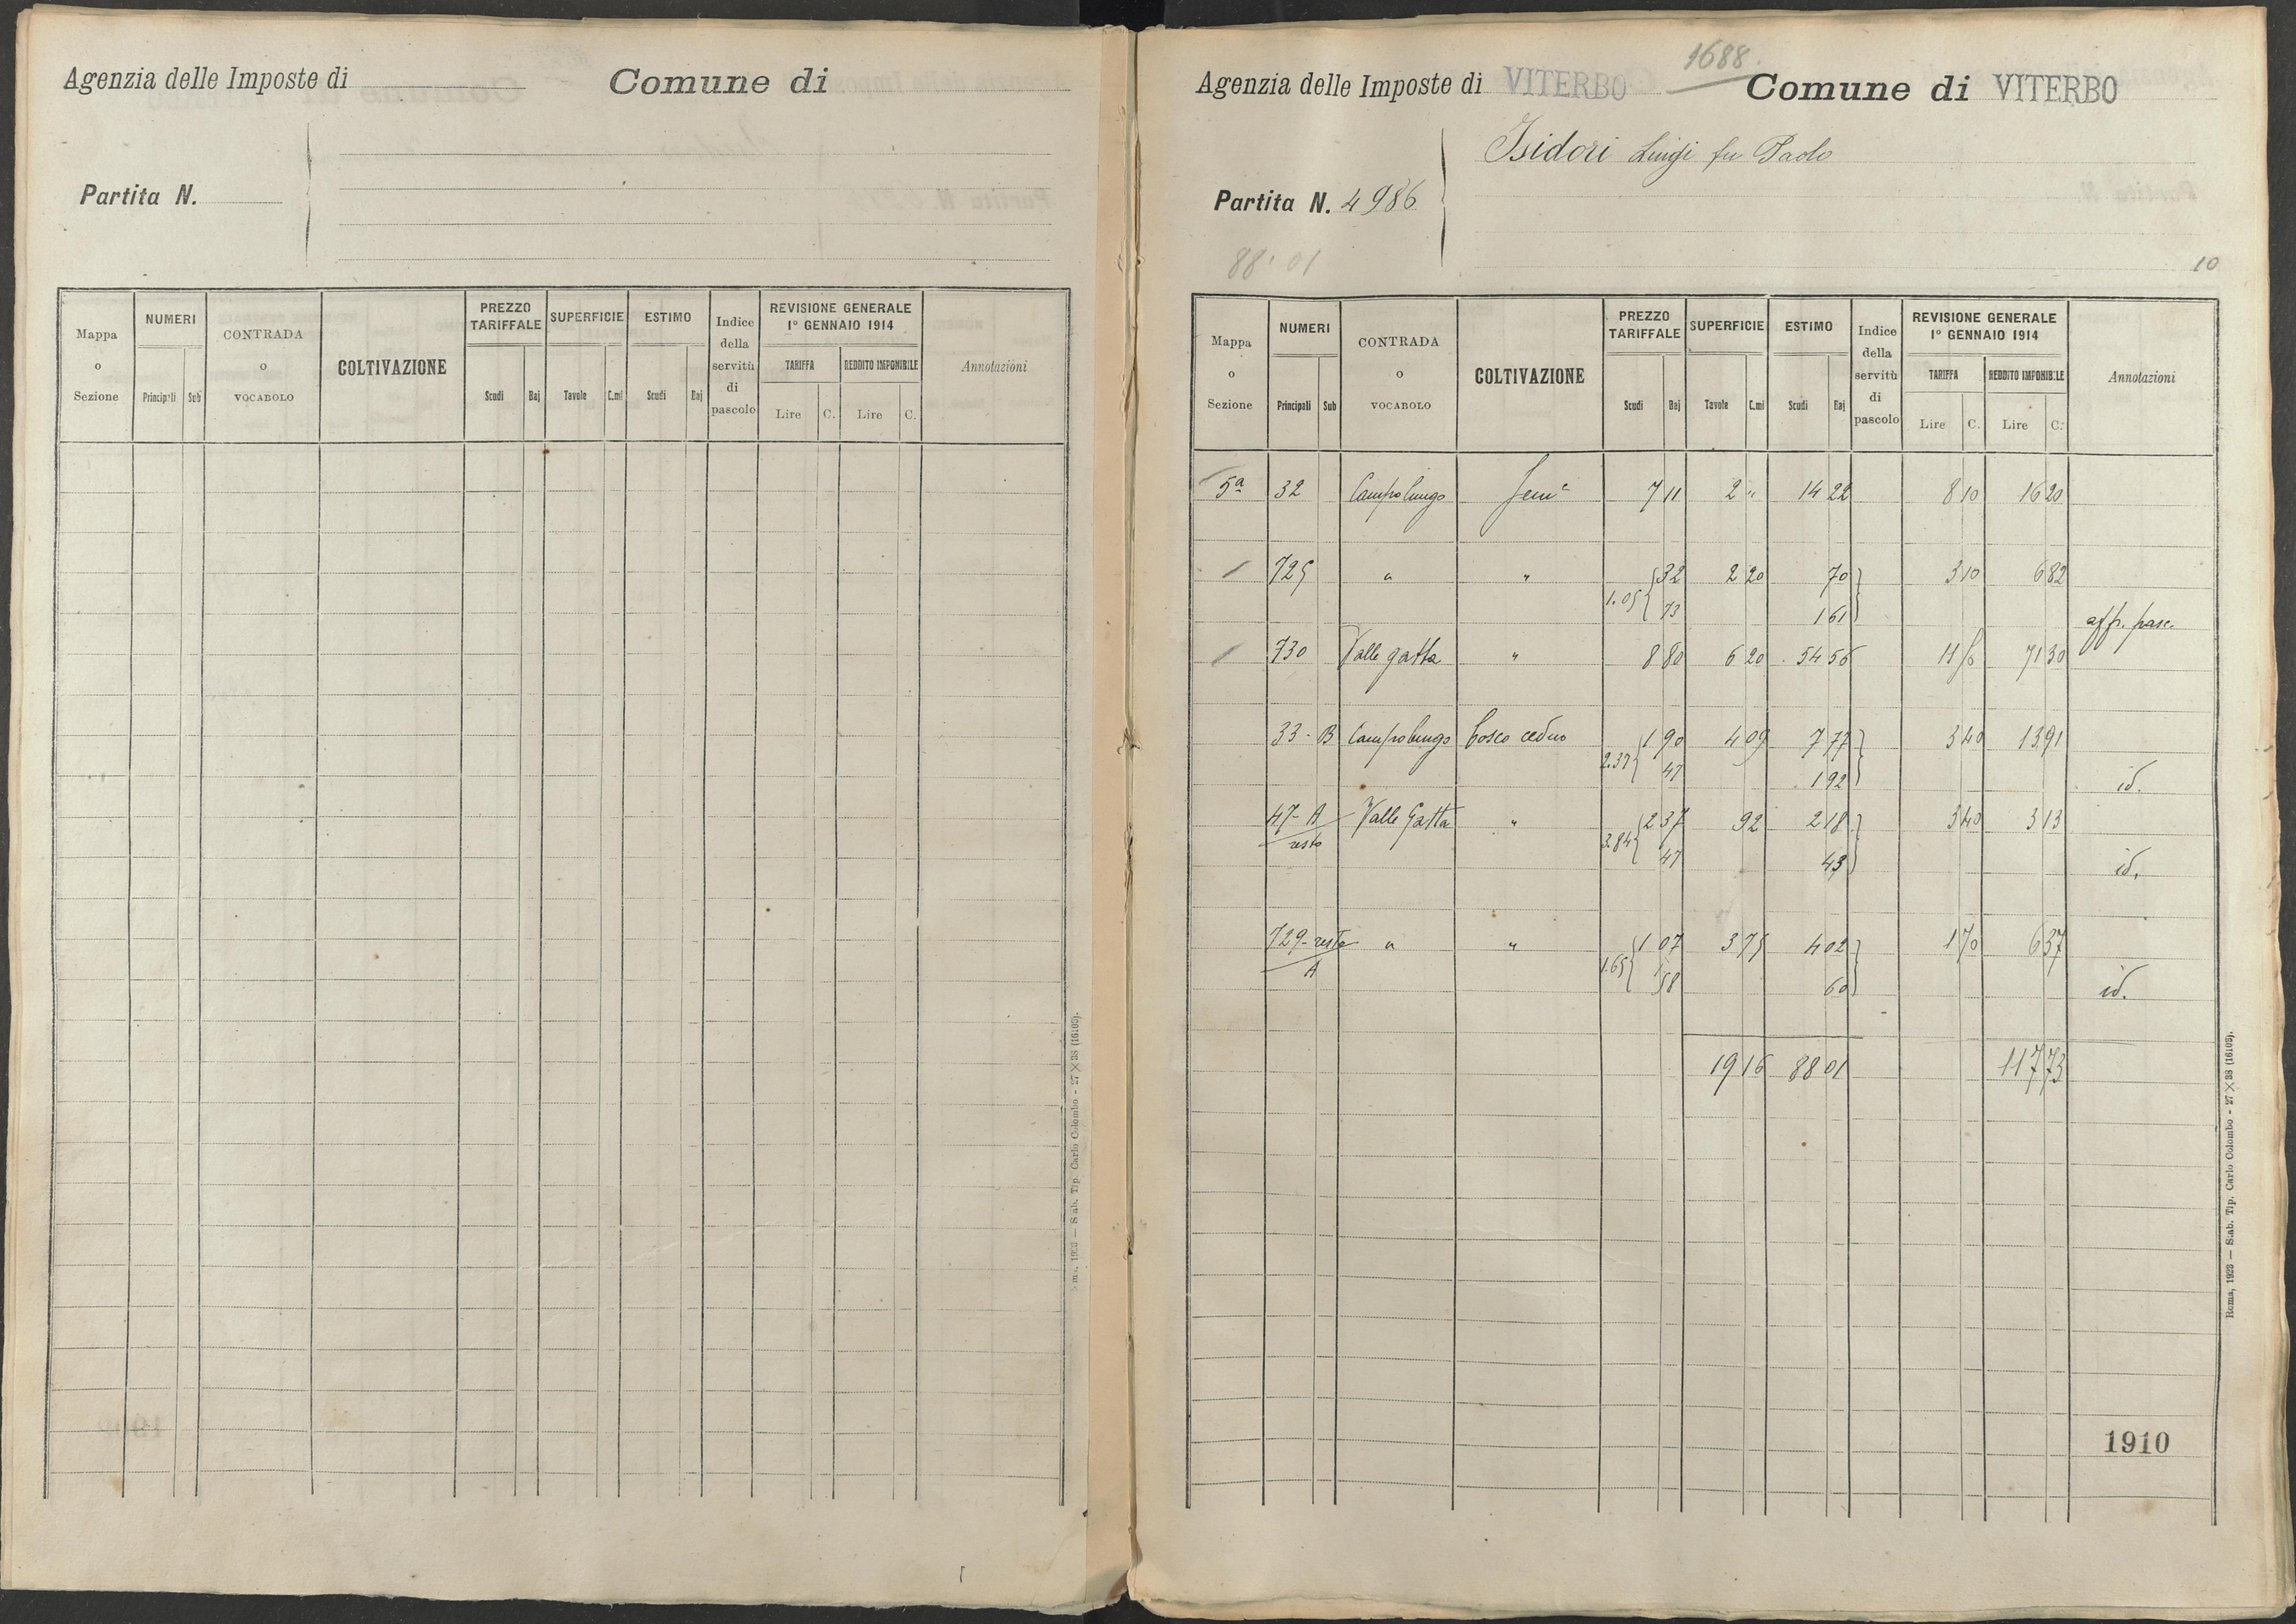 Agenzia delle Imposte di Comune di
Partita N.
Mappa o Sezione NUMERI Principali Sub CONTRADA o VOCABOLO COLTIVAZIONE PREZZO TARIFFALE Scudi Baj SUPERFICIE Tavole C.mi ESTIMO Scudi Baj Indice della servitù di pascolo REVISIONE GENERALE 1° GENNAIO 1914 TARIFFA Lire C. REDDITO IMPONIBILE Lire C. Annotazioni
1688.
Agenzia delle Imposte di VITERBO Comune di VITERBO
Isidori Luigi fu Paolo
Partita N. 4986
88.01
10
Mappa o Sezione NUMERI Principali Sub CONTRADA o VOCABOLO COLTIVAZIONE PREZZO TARIFFALE Scudi Baj SUPERFICIE Tavole C.mi ESTIMO Scudi Baj Indice della servitù di pascolo REVISIONE GENERALE 1° GENNAIO 1914 TARIFFA Lire C. REDDITO IMPONIBILE Lire C. Annotazioni
5ª 32 Campolungo Semº 7 11 2 " 14 22 8 10 16 20
725 " " 32 2 20 70 3 10 6 82
1.05 73 1 61 aff. pasc.
730 Valle gatta " 8 80 6 20 54 56 11 50 71 30
33 - B Campolungo bosco ceduo 1 90 4 09 7 77 3 40 13 91
2.37 47 1 92 id.
47 - A Valle Gatta " 2 37 92 2 18 3 40 3 13
resto 2.84 47 43 id.
729 - resto " " 1 07 3 75 4 02 1 70 6 37
A 1.65 58 60 id.
19 16 88 01 117 73
1910
Roma, 1923 — Stab. Tip. Carlo Colombo - 27 × 38 (16103).